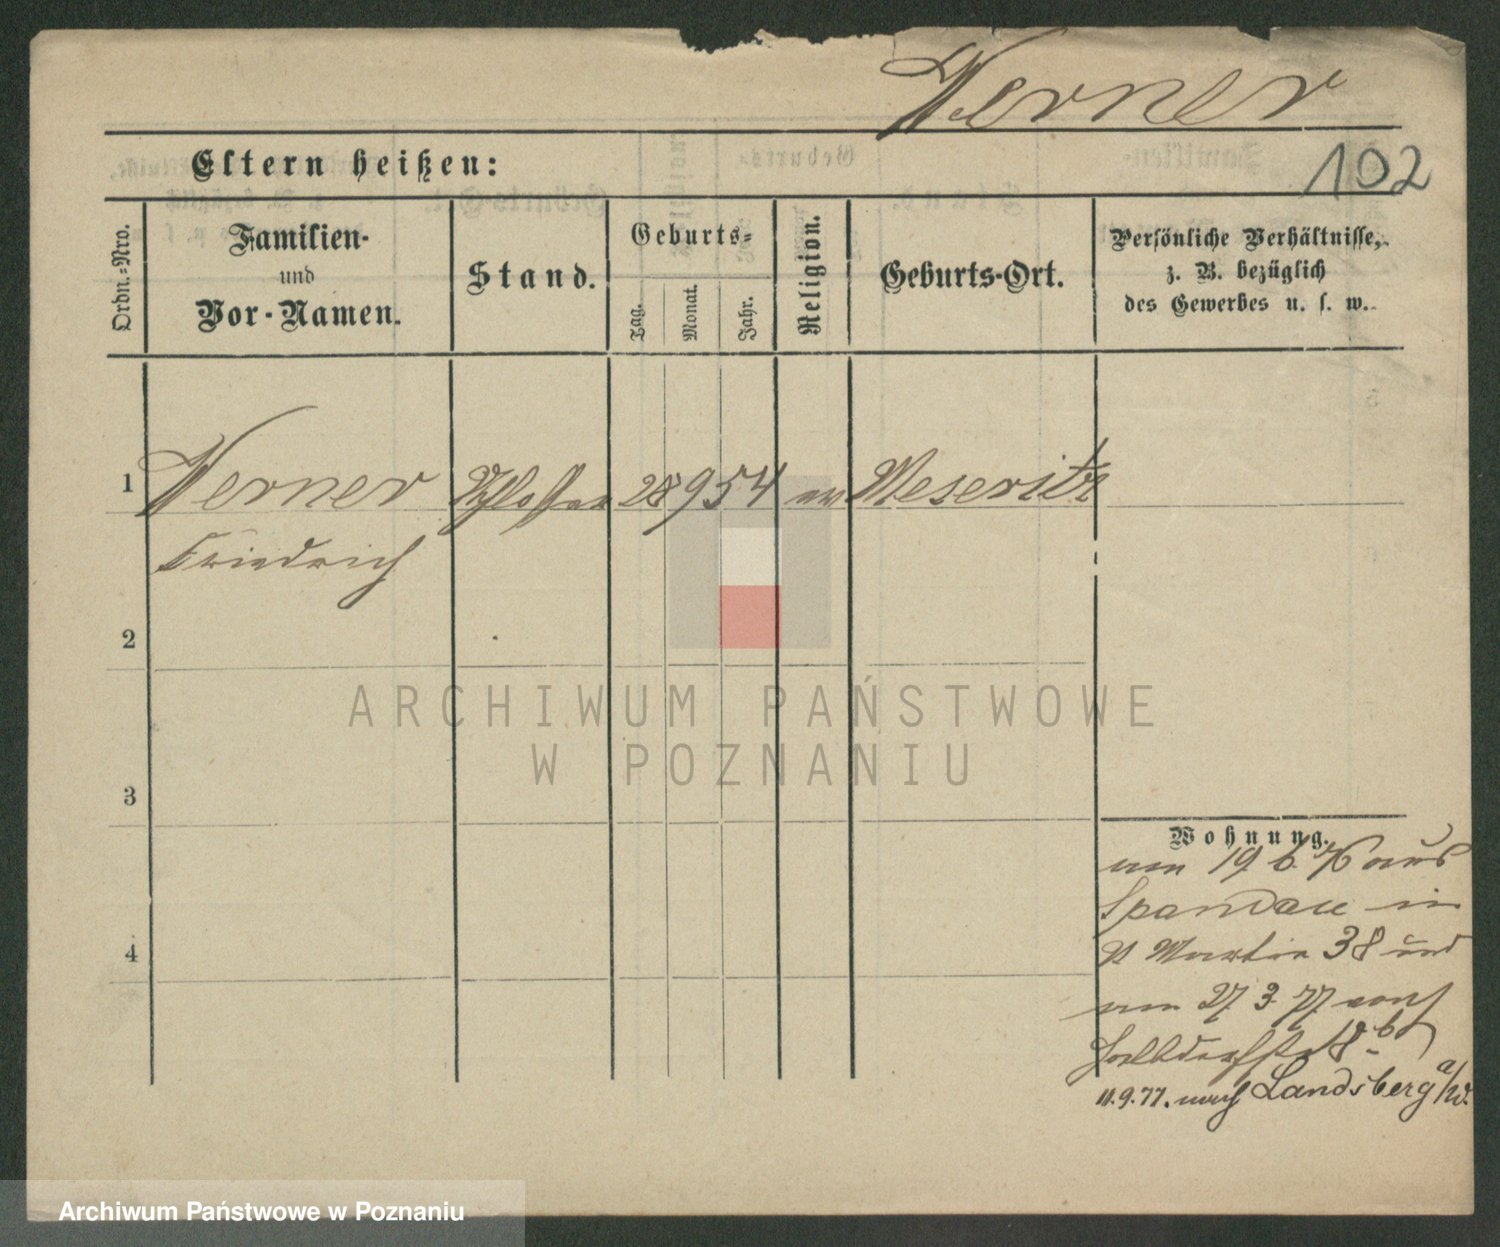 Werner
Eltern heißen:
102
Ordn.-Nro.
Familien-
und
Vor-Namen.
Stand.
Geburts-
Tag.
Monat.
Jahr.
Religion.
Geburts-Ort.
Persönliche Verhältnisse,
z. B. bezüglich
des Gewerbes u. s. w.
1
Werner Schlosser 28 9 54 ev Meseritz
Friedrich
2
3
4
ARCHIWUM PAŃSTWOWE
W POZNANIU
Wohnung.
am 19 6. 76 aus
Spandau in
St Martin 38 und
am 27 3 77 nach
Halbdorfstr 18 b
11.9.77. nach Landsberg a/W.
Archiwum Państwowe w Poznaniu